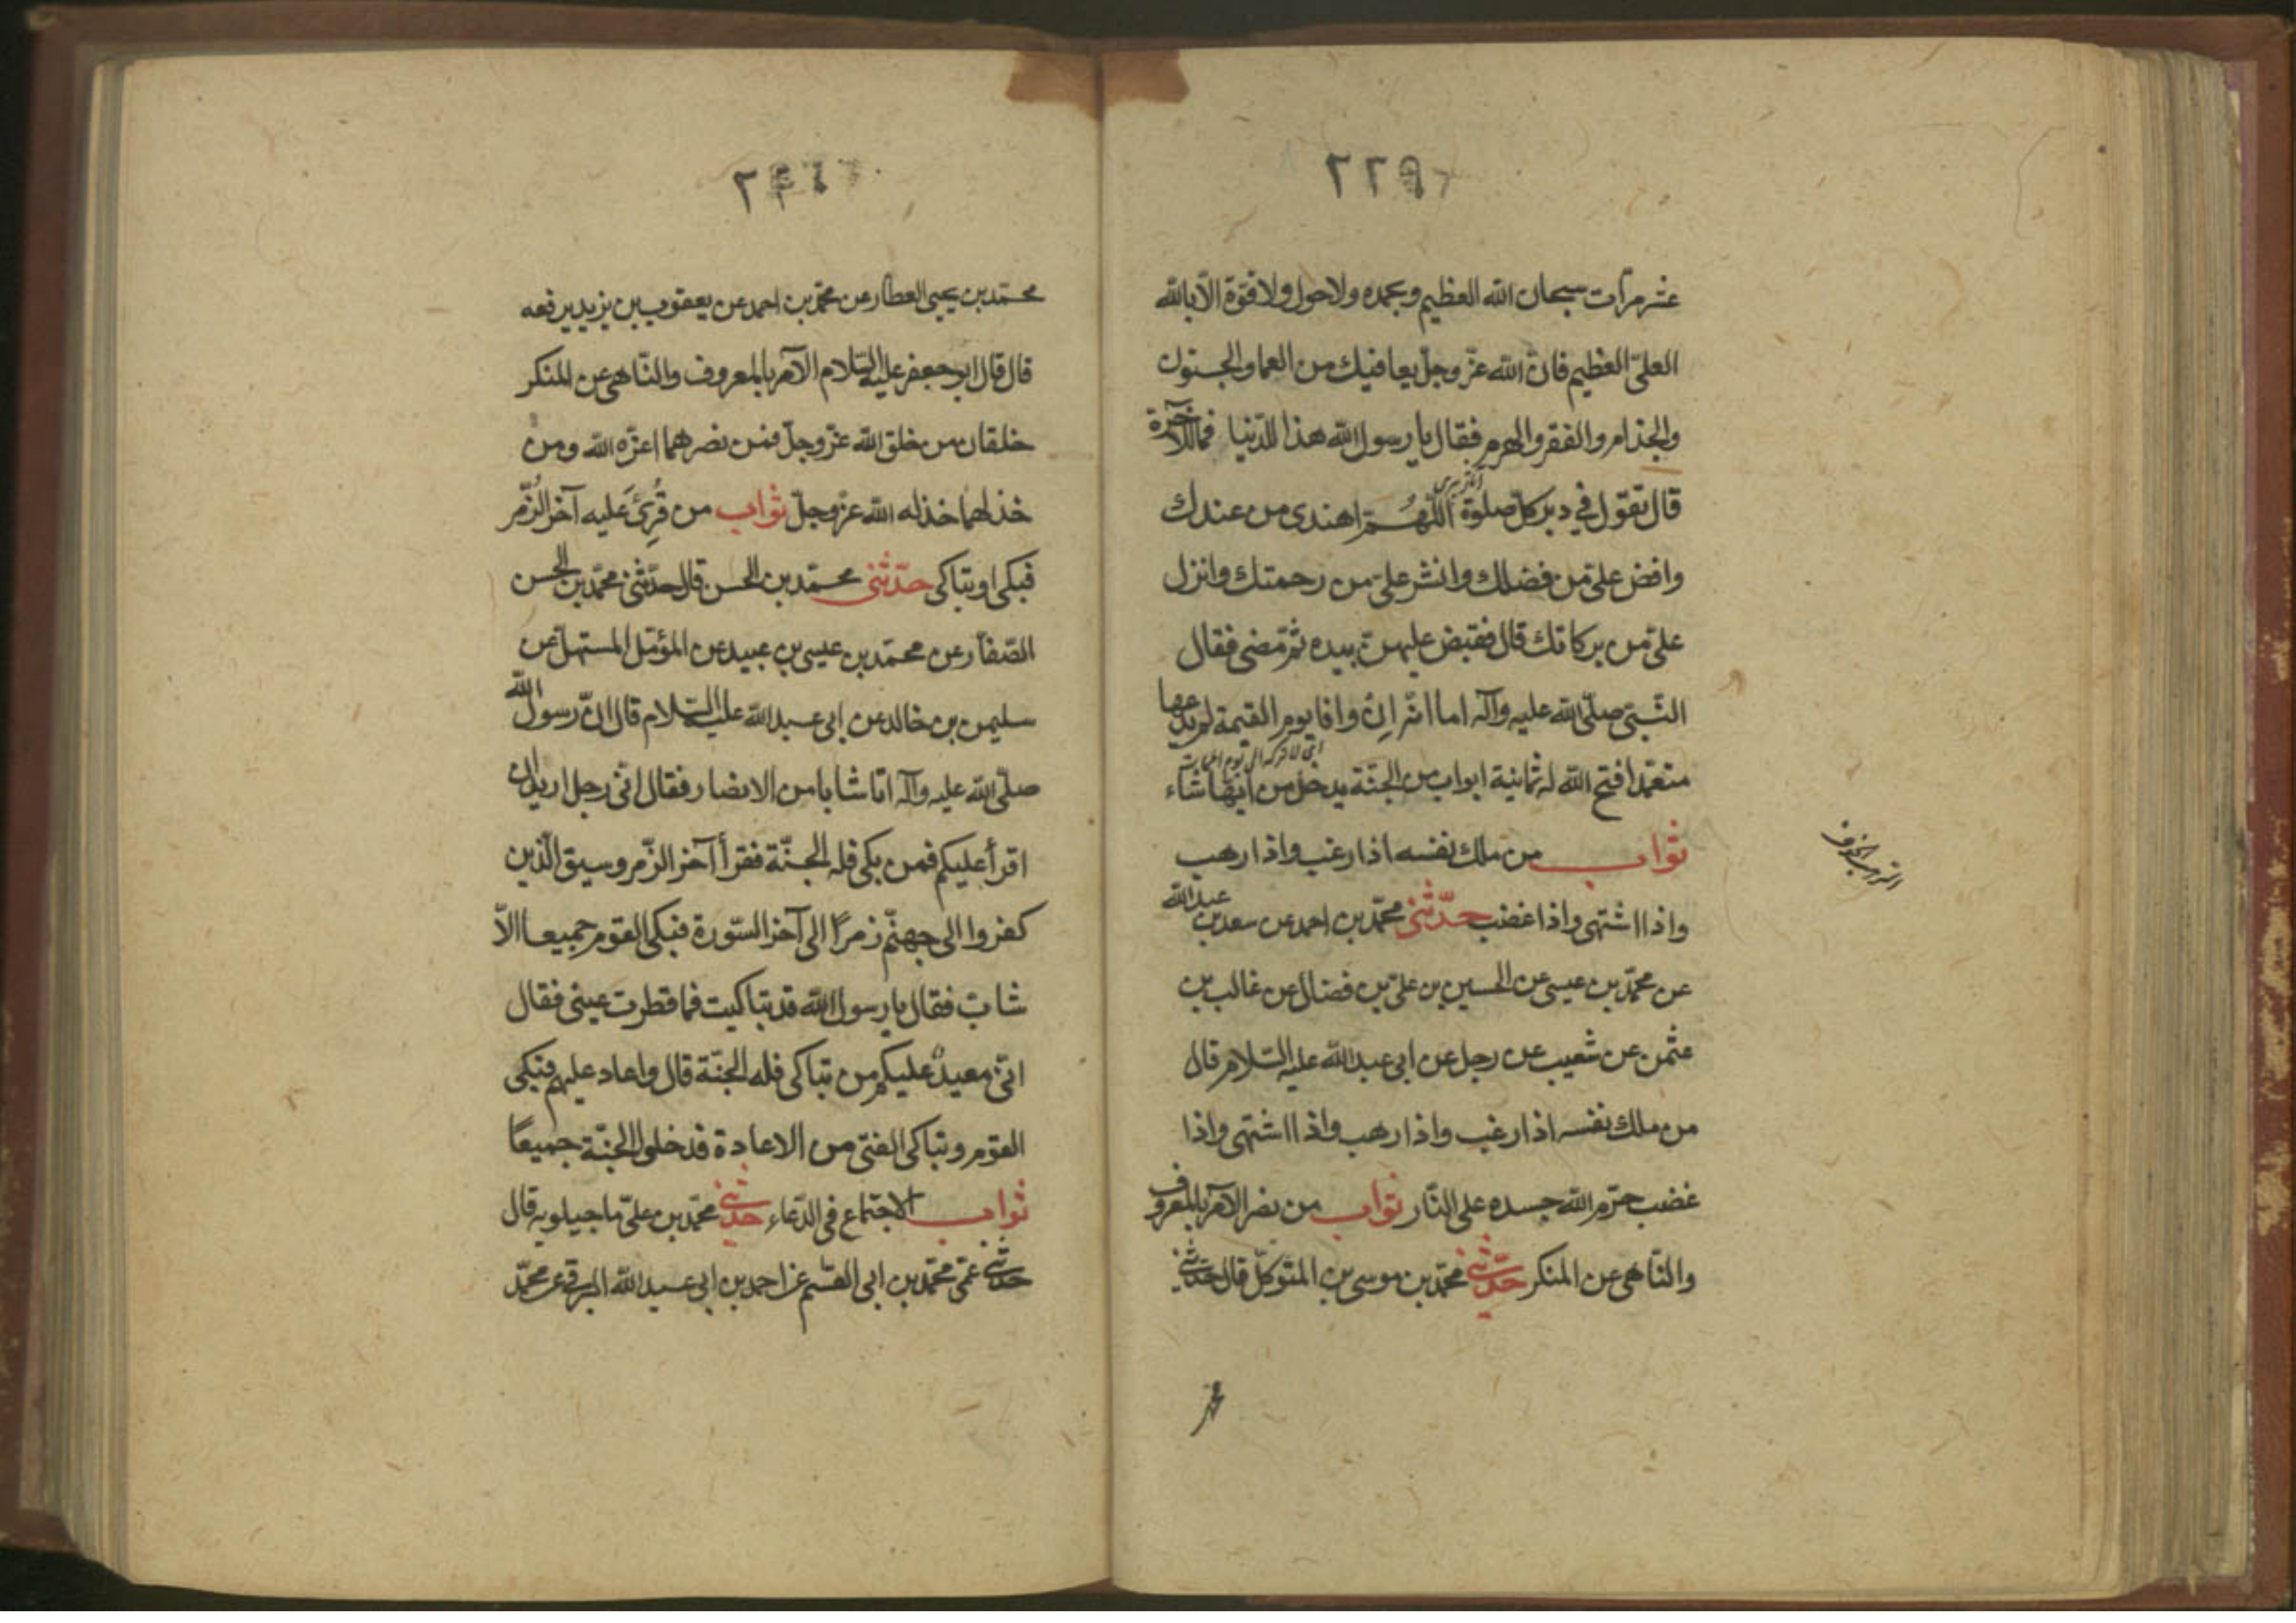 ٢٢٩
عشر مرّات سبحان الله العظيم وبحمده ولا حول ولا قوّة الّا بالله
العلىّ العظيم فانّ الله عزّ وجلّ يعافيك من العما والجنون
والجذام والفقر والهرم فقال يا رسول الله هذا للدّنيا فما للآخرة
قال تقول في دبر كلّ صلوة اللّهُمّ اهندى من عندك
وافض علىّ من فضلك وانشر علىّ من رحمتك وانزل
علىّ من بركاتك قال فقبض عليهنّ بيده ثمّ مضى فقال
النّبىّ صلّى الله عليه وآله اما انّه اِن وافا يوم القيمة لم يدعها
متعمّدا فتح الله له ثمانية ابواب من الجنّة يدخل من ايّها شاء
ثواب من ملك نفسه اذا رغب واذا رهب
واذا اشتهى واذا غضب حدّثنى محمّد بن احمد عن سعد بن عبد الله
عن محمّد بن عيسى عن الحسين بن علىّ بن فضال عن غالب بن
عثمن عن شعيب عن رجل عن ابى عبد الله عليه السّلام قال
من ملك نفسه اذا رغب واذا رهب واذا اشتهى واذا
غضب حرّم الله جسده على النّار ثواب من نصر الآمر بالمعروف
والنّاهى عن المنكر حدّثنى محمّد بن موسى بن المتوكّل قال حدّثنى
محمّد بن يحيى العطار عن محمّد بن احمد عن يعقوب بن يزيد يرفعه
قال قال ابو جعفر عليه السّلام الآمر بالمعروف والنّاهى عن المنكر
خلقان من خلق الله عزّ وجلّ فمن نصرهما اعزّه الله ومن
خذلهما خذله الله عزّ وجلّ ثواب من قُرِئَ عَليه آخر الزُّمَر
فبكى او تباكى حدّثنى محمّد بن الحسن قال حدّثنى محمّد بن الحسن
الصّفار عن محمّد بن عيسى بن عبيد عن المؤمّل المستهلّ عن
سليمن بن خالد عن ابى عبد الله عليه السّلام قال انّ رسول الله
صلّى الله عليه وآله اتا شابا من الانصار فقال انّى رجل اريد ان
اقرأ عليكم فمن بكى فله الجنّة فقرأ آخر الزّمر وسيق الّذين
كفروا الى جهنّم زمرًا الى آخر السّورة فبكى القوم جميعا الاّ
شابّ فقال يا رسول الله قد تباكيت فما قطرت عينى فقال
انّى معيدٌ عليكم من تباكى فله الجنّة قال واعاد عليهم فبكى
القوم وتباكى الفتى من الاعادة فدخلوا الجنّة جميعًا
ثواب الاجتماع فى الدّعاء حدّثنى محمّد بن علىّ ماجيلويه قال
حدّثنى عمّى محمّد بن ابى القسم عن احمد بن ابى عبد الله البرقى عن محمّد